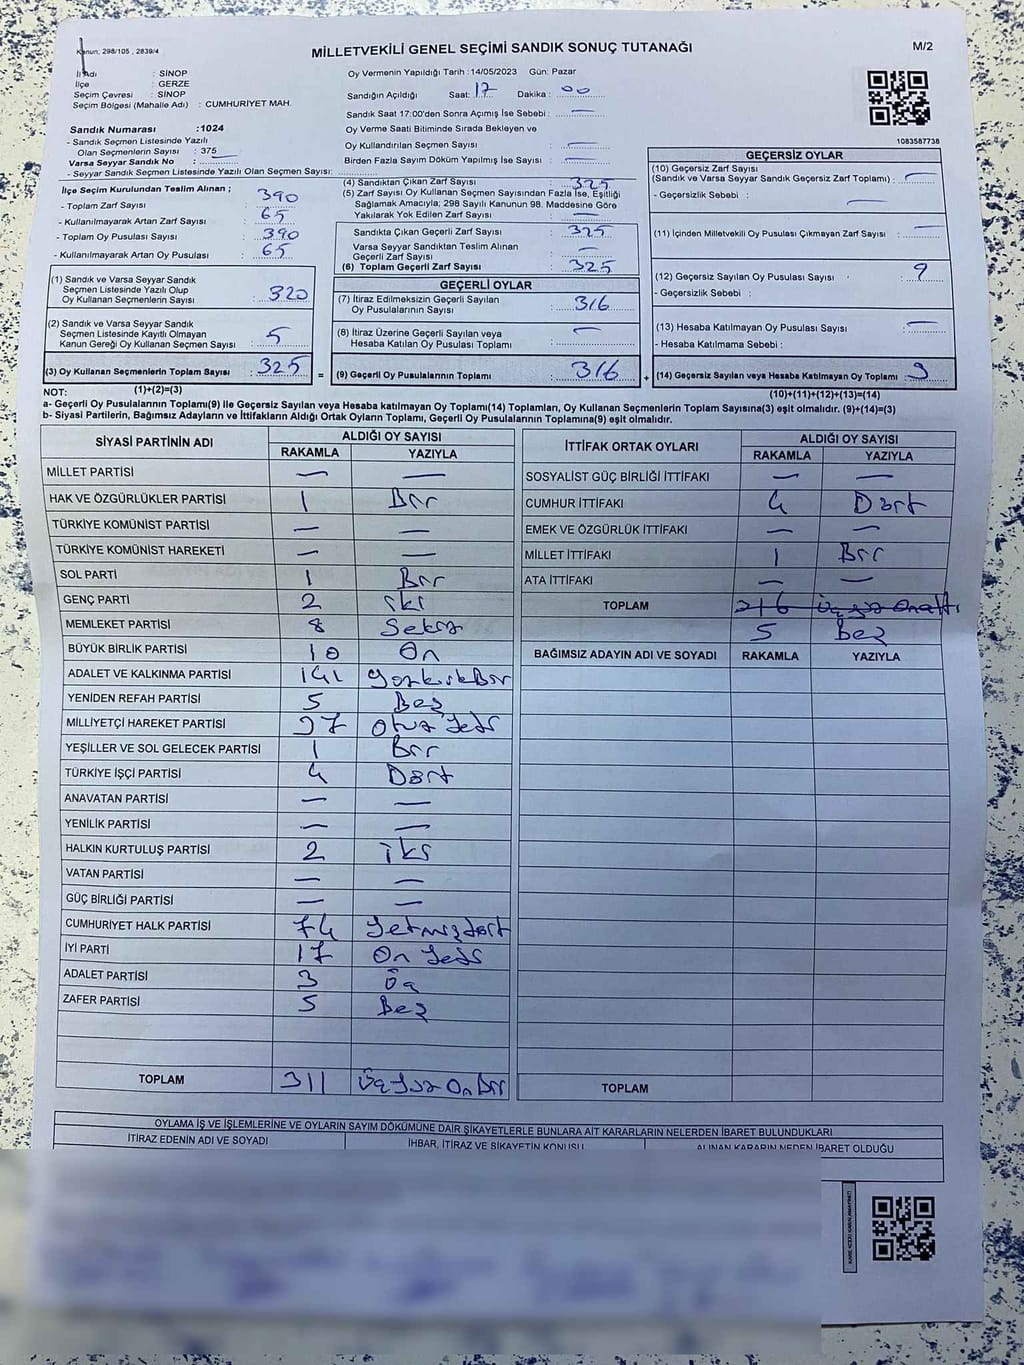 Kanun; 298/105 , 2839/4
MİLLETVEKİLİ GENEL SEÇİMİ SANDIK SONUÇ TUTANAĞI
M/2
İl Adı : SİNOP
İlçe : GERZE
Seçim Çevresi : SİNOP
Seçim Bölgesi (Mahalle Adı) : CUMHURİYET MAH.
Sandık Numarası :1024
- Sandık Seçmen Listesinde Yazılı
Olan Seçmenlerin Sayısı : 375
Varsa Seyyar Sandık No :
- Seyyar Sandık Seçmen Listesinde Yazılı Olan Seçmen Sayısı:
Oy Vermenin Yapıldığı Tarih :14/05/2023 Gün: Pazar
Sandığın Açıldığı Saat: 17 Dakika : 00
Sandık Saat 17:00'den Sonra Açımış İse Sebebi : —
Oy Verme Saati Bitiminde Sırada Bekleyen ve
Oy Kullandırılan Seçmen Sayısı : —
Birden Fazla Sayım Döküm Yapılmış İse Sayısı : —
1083587738
İlçe Seçim Kurulundan Teslim Alınan ;
- Toplam Zarf Sayısı : 390
- Kullanılmayarak Artan Zarf Sayısı : 65
- Toplam Oy Pusulası Sayısı : 390
- Kullanılmayarak Artan Oy Pusulası : 65
(1) Sandık ve Varsa Seyyar Sandık
Seçmen Listesinde Yazılı Olup
Oy Kullanan Seçmenlerin Sayısı : 320
(2) Sandık ve Varsa Seyyar Sandık
Seçmen Listesinde Kayıtlı Olmayan
Kanun Gereği Oy Kullanan Seçmen Sayısı : 5
(3) Oy Kullanan Seçmenlerin Toplam Sayısı : 325 =
(4) Sandıktan Çıkan Zarf Sayısı : 325
(5) Zarf Sayısı Oy Kullanan Seçmen Sayısından Fazla İse, Eşitliği
Sağlamak Amacıyla, 298 Sayılı Kanunun 98. Maddesine Göre
Yakılarak Yok Edilen Zarf Sayısı : —
Sandıkta Çıkan Geçerli Zarf Sayısı : 325
Varsa Seyyar Sandıktan Teslim Alınan
Geçerli Zarf Sayısı : —
(6) Toplam Geçerli Zarf Sayısı : 325
GEÇERLİ OYLAR
(7) İtiraz Edilmeksizin Geçerli Sayılan
Oy Pusulalarının Sayısı : 316
(8) İtiraz Üzerine Geçerli Sayılan veya
Hesaba Katılan Oy Pusulası Toplamı : —
(9) Geçerli Oy Pusulalarının Toplamı : 316 +
GEÇERSİZ OYLAR
(10) Geçersiz Zarf Sayısı
(Sandık ve Varsa Seyyar Sandık Geçersiz Zarf Toplamı) : —
- Geçersizlik Sebebi : —
(11) İçinden Milletvekili Oy Pusulası Çıkmayan Zarf Sayısı : —
(12) Geçersiz Sayılan Oy Pusulası Sayısı : 9
- Geçersizlik Sebebi :
(13) Hesaba Katılmayan Oy Pusulası Sayısı : —
- Hesaba Katılmama Sebebi :
(14) Geçersiz Sayılan veya Hesaba Katılmayan Oy Toplamı : 9
NOT: (1)+(2)=(3) (10)+(11)+(12)+(13)=(14)
a- Geçerli Oy Pusulalarının Toplamı(9) İle Geçersiz Sayılan veya Hesaba katılmayan Oy Toplamı(14) Toplamları, Oy Kullanan Seçmenlerin Toplam Sayısına(3) eşit olmalıdır. (9)+(14)=(3)
b- Siyasi Partilerin, Bağımsız Adayların ve İttifakların Aldığı Ortak Oyların Toplamı, Geçerli Oy Pusulalarının Toplamına(9) eşit olmalıdır.
SİYASİ PARTİNİN ADI ALDIĞI OY SAYISI
RAKAMLA YAZIYLA
MİLLET PARTİSİ — —
HAK VE ÖZGÜRLÜKLER PARTİSİ 1 Bir
TÜRKİYE KOMÜNİST PARTİSİ — —
TÜRKİYE KOMÜNİST HAREKETİ — —
SOL PARTİ 1 Bir
GENÇ PARTİ 2 iki
MEMLEKET PARTİSİ 8 Sekiz
BÜYÜK BİRLİK PARTİSİ 10 On
ADALET VE KALKINMA PARTİSİ 141 Yüzkırkbir
YENİDEN REFAH PARTİSİ 5 Beş
MİLLİYETÇİ HAREKET PARTİSİ 37 Otuz Yedi
YEŞİLLER VE SOL GELECEK PARTİSİ 1 Bir
TÜRKİYE İŞÇİ PARTİSİ 4 Dört
ANAVATAN PARTİSİ — —
YENİLİK PARTİSİ — —
HALKIN KURTULUŞ PARTİSİ 2 iki
VATAN PARTİSİ — —
GÜÇ BİRLİĞİ PARTİSİ — —
CUMHURİYET HALK PARTİSİ 74 Yetmişdört
İYİ PARTİ 17 On Yedi
ADALET PARTİSİ 3 Üç
ZAFER PARTİSİ 5 Beş
TOPLAM 311 Üç Yüz On Bir
İTTİFAK ORTAK OYLARI ALDIĞI OY SAYISI
RAKAMLA YAZIYLA
SOSYALİST GÜÇ BİRLİĞİ İTTİFAKI — —
CUMHUR İTTİFAKI 4 Dört
EMEK VE ÖZGÜRLÜK İTTİFAKI — —
MİLLET İTTİFAKI 1 Bir
ATA İTTİFAKI — —
TOPLAM 316 Üç yüz Onaltı
5 Beş
BAĞIMSIZ ADAYIN ADI VE SOYADI RAKAMLA YAZIYLA
TOPLAM
OYLAMA İŞ VE İŞLEMLERİNE VE OYLARIN SAYIM DÖKÜMÜNE DAİR ŞİKAYETLERLE BUNLARA AİT KARARLARIN NELERDEN İBARET BULUNDUKLARI
İTİRAZ EDENİN ADI VE SOYADI İHBAR, İTİRAZ VE ŞİKAYETİN KONUSU ALINAN KARARIN NEDEN İBARET OLDUĞU